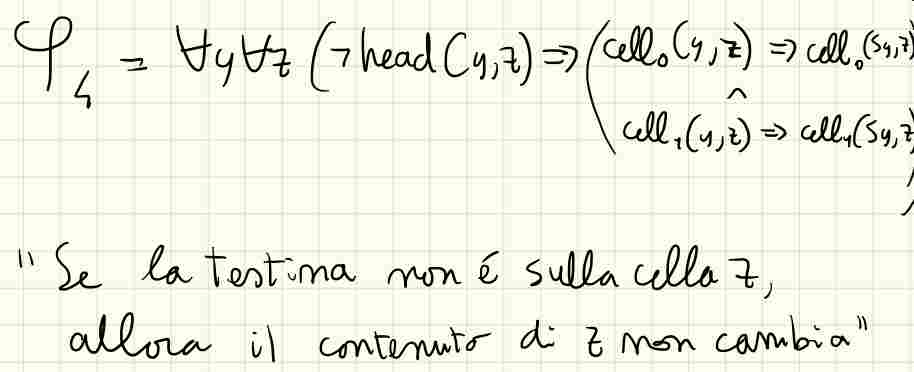 φ₄ = ∀y∀z (¬head(y,z) ⇒ (cell₀(y,z) ⇒ cell₀(Sy,z)
∧
cell₁(y,z) ⇒ cell₁(Sy,z)
"Se la testina non é sulla cella z,
allora il contenuto di z non cambia"